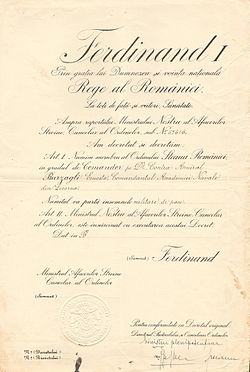 Ferdinand I
Prin gratia lui Dumnezeu si vointa natională
Rege al României.
La toti de fată si viitori, Sănătate.
Asupra raportului Ministrului Nostru al Afacerilor
Streine Cancelar al Ordinelor, sub No
Am decretat si decretăm:
Art. I. Numim membru al Ordinului Steaua României,
in gradul de Comandor pe Dl Contra Amiral
Burzagli Ernesto, Comandantul Academiei Navale
din Livorno
Numitul va purta insemnele militare de pace
Art. II. Ministrul Nostru al Afacerilor Streine Cancelar
al Ordinelor, este insărcinat cu executarea acestui Decret.
Dat in
(Semnat) Ferdinand
Ministrul Afacerilor Streine
Cancelar al Ordinelor
(Semnat)
Pentru conformitate cu Decretul original
Ministru plenipotentiar
No (Decretului)
No (Registrului)